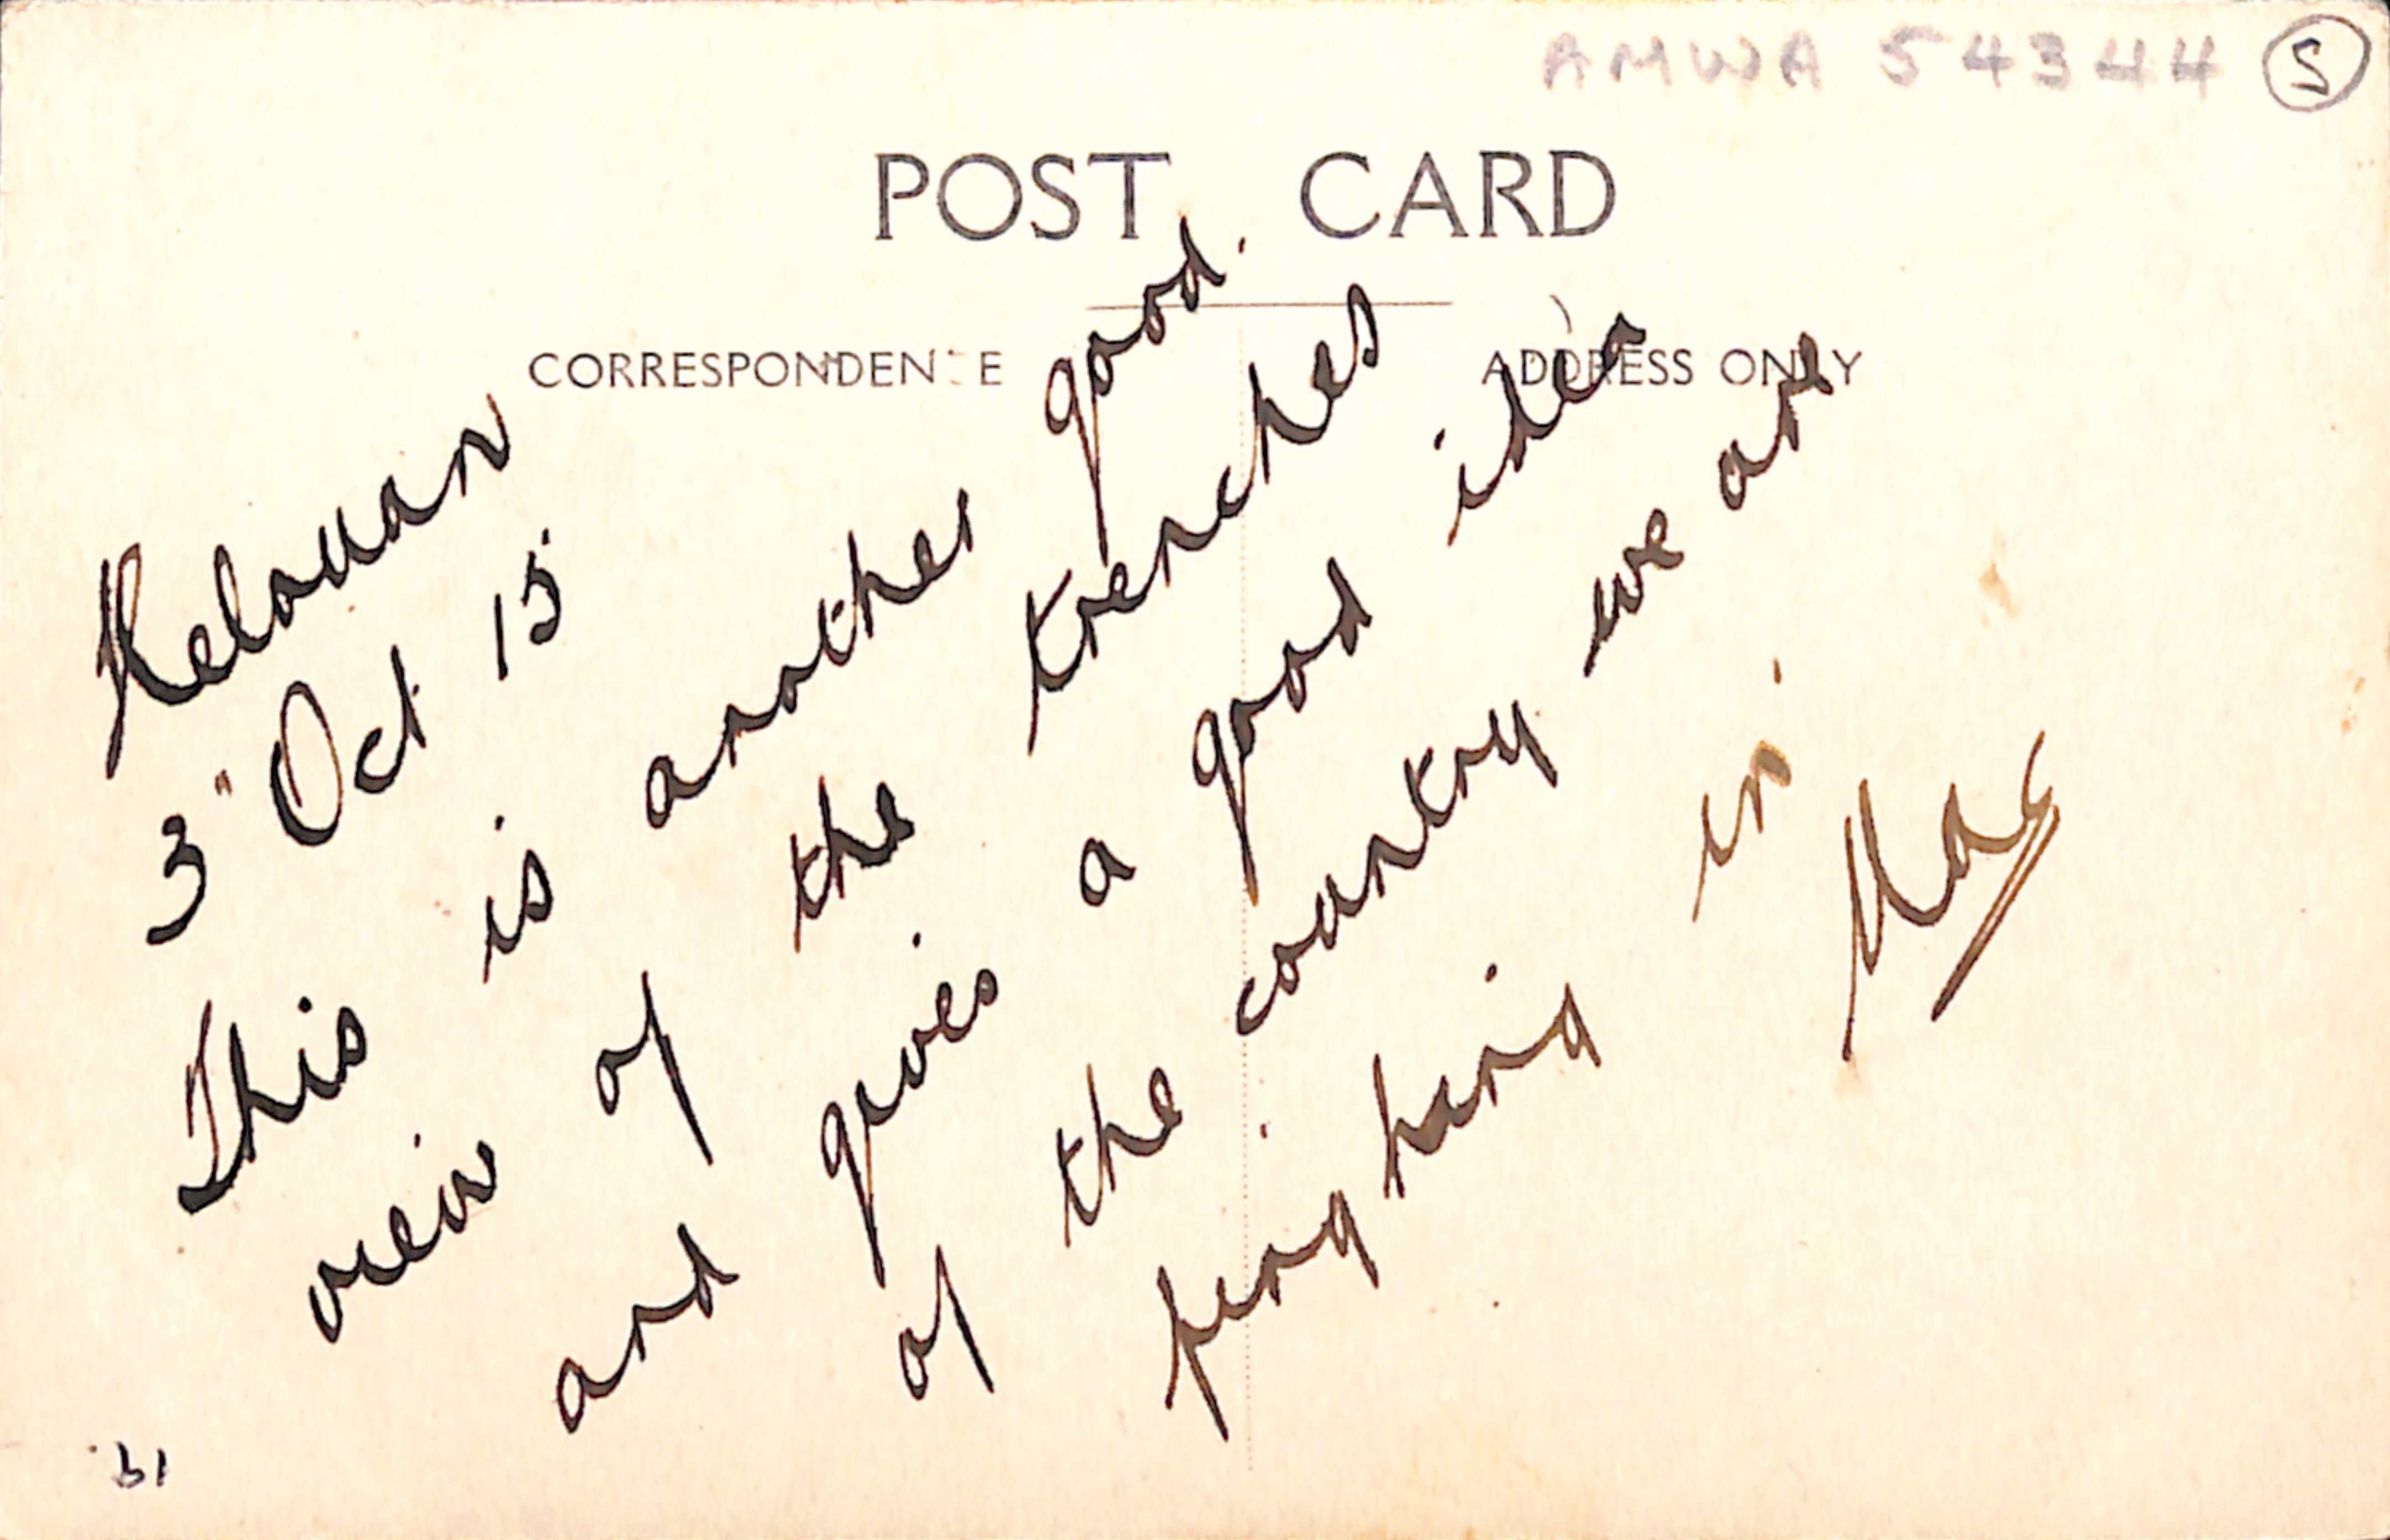 AMWA 54344 S
POST CARD
CORRESPONDENCE
ADDRESS ONLY
Helouan
3" Oct 15
This is another good
view of the trenches
and gives a good idea
of the country we are
in
Mac